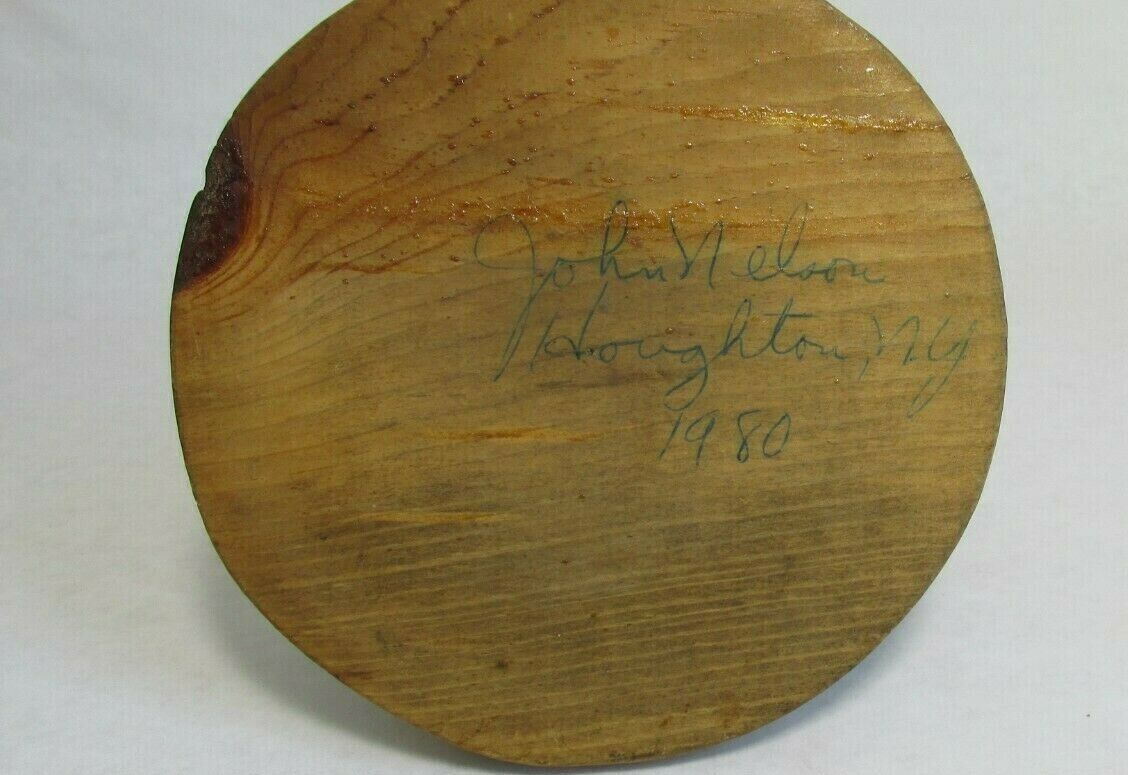 John Nelson
Houghton, NY
1980